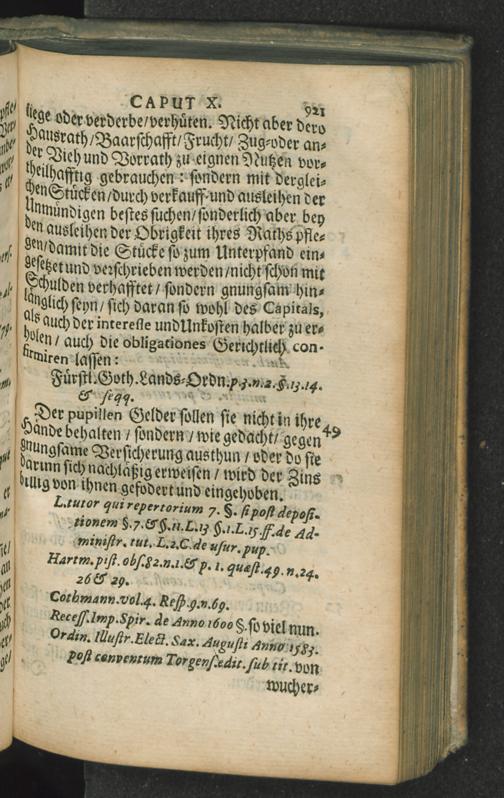 CAPUT X. 921
liege oder verderbe/verhüten. Nicht aber dero
Hausrath/Baarschafft/Frucht/Zug-oder an-
der Vieh und Vorrath zu eignen Nutzen vor-
theilhafftig gebrauchen: sondern mit derglei-
chen Stücken/durch verkauff-und ausleihen der
Unmündigen bestes suchen/sonderlich aber bey
den ausleihen der Obrigkeit ihres Raths pfle-
gen/damit die Stücke so zum Unterpfand ein-
gesetzet und verschrieben werden/nicht schon mit
Schulden verhafftet/sondern gnungsam hin-
länglich seyn/sich daran so wohl des Capitals,
als auch der interesse und Unkosten halber zu er-
holen/auch die obligationes Gerichtlich con-
firmiren lassen:
Fürstl. Goth. Lands-Ordn. p. 3. n. 2. §. 13. 14.
& seqq.
Der pupillen Gelder sollen sie nicht in ihre 49
Hände behalten/sondern/wie gedacht/gegen
gnungsame Versicherung austhun/oder do sie
darinn sich nachläßig erweisen/wird der Zins
billig von ihnen gefodert und eingehoben.
L. tutor qui repertorium 7. §. si post deposi-
tionem §. 7. & §. 11. L. 13 §. 1. L. 15. ff. de Ad-
ministr. tut. L. 2. C. de usur. pup.
Hartm. pist. obs. 82. n. 1. & p. 1. quæst. 49. n. 24.
26 & 29.
Cothmann. vol. 4. Resp. 9. n. 69.
Recess. Imp. Spir. de Anno 1600 §. so viel nun.
Ordin. Illustr. Elect. Sax. Augusti Anno 1583.
post conventum Torgens. edit. sub tit. von
wucher-